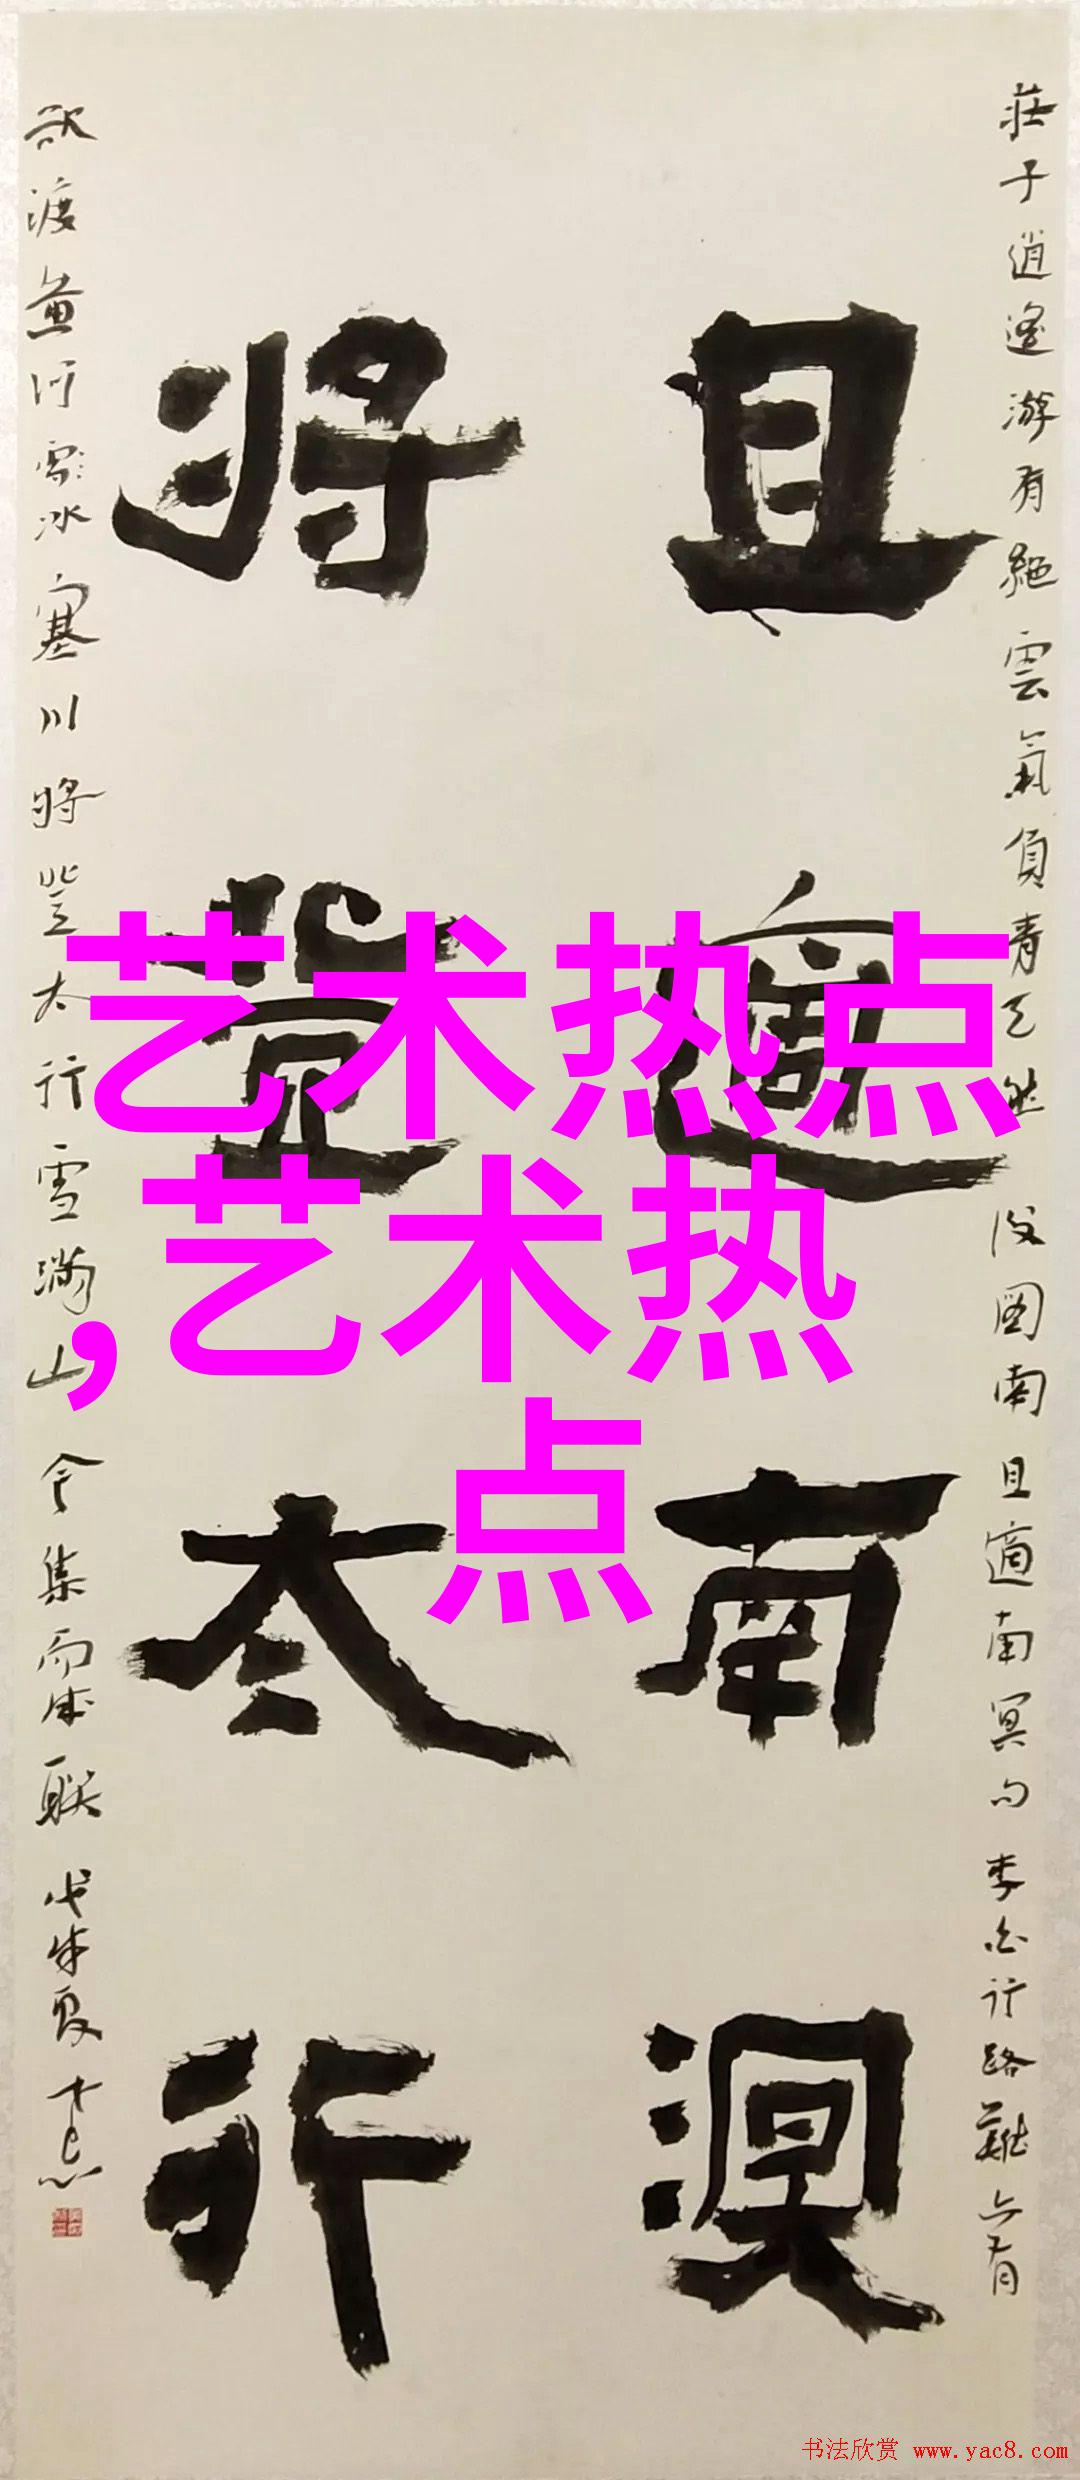 莊子逍遙游有絕雲氣負青天然後圖南且適南冥句李白行路難亦有
且適南溟
將登太行
欲渡黃河冰塞川將登太行雪滿山今集而成聯戊戌夏
艺术热点
,艺术热
点
书法欣赏 www.yac8.com